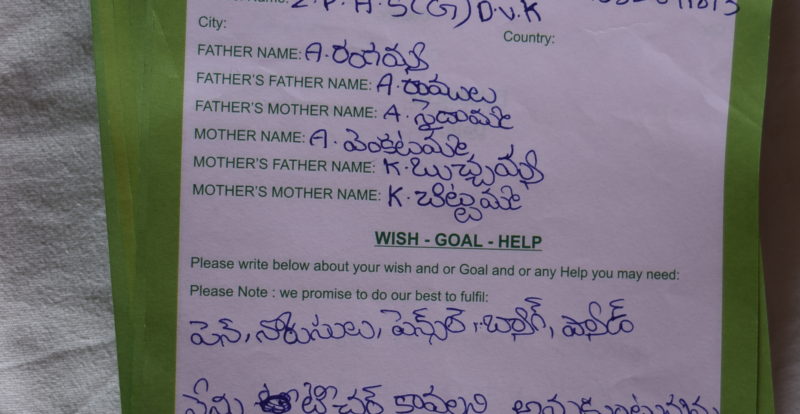 Z.P.H.S(G) D.V.K
City:
Country:
FATHER NAME: A. రంగయ్య
FATHER'S FATHER NAME: A. రాములు
FATHER'S MOTHER NAME: A. సైదామ్మ
MOTHER NAME: A. వెంకటమ్మ
MOTHER'S FATHER NAME: K. బుచ్చయ్య
MOTHER'S MOTHER NAME: K. చిట్టమ్మ
WISH - GOAL - HELP
Please write below about your wish and or Goal and or any Help you may need:
Please Note : we promise to do our best to fulfil:
పెన్, నోటుసులు, పెన్సిల్, బ్యాగ్, ప్యాడ్
నేను టీచర్ కావాలని అనుకుంటున్నాను